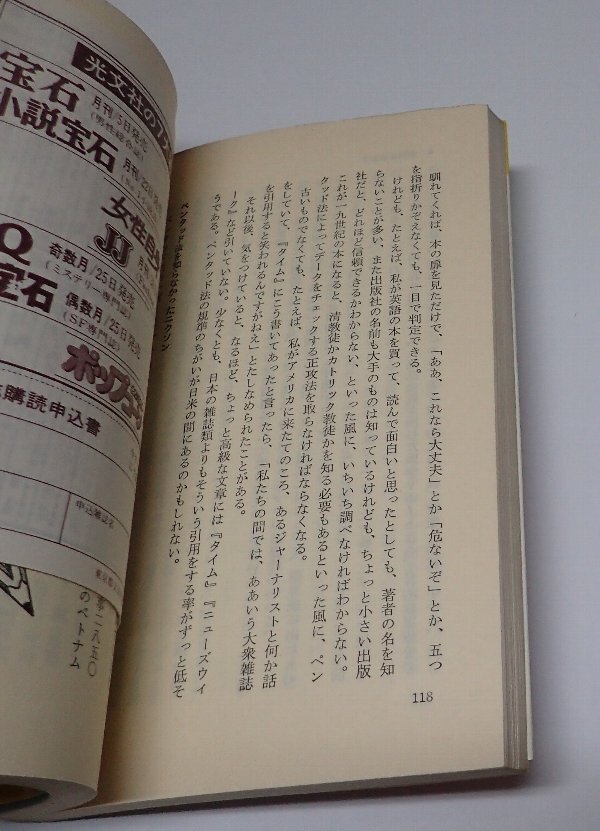 馴れてくれば、本の扉を見ただけで、「ああ、これなら大丈夫」とか「危ないぞ」とか、五つ
を指折りかぞえなくても、一目で判定できる。
けれども、たとえば、私が英語の本を買って、読んで面白いと思ったとしても、著者の名を知
らないことが多い、また出版社の名前も大手のものは知っているけれども、ちょっと小さい出版
社だと、どれほど信頼できるかわからない、といった風に、いちいち調べなければわからない。
これが一九世紀の本になると、清教徒かカトリック教徒かを知る必要もあるといった風に、ペン
タッド法によってデータをチェックする正攻法を取らなければならなくなる。
古いものでなくても、たとえば、私がアメリカに来たてのころ、あるジャーナリストと何か話
をしていて、『タイム』にこう書いてあったと言ったら、「私たちの間では、ああいう大衆雑誌
を引用すると笑われるんですがねえ」とたしなめられたことがある。
それ以後、気をつけていると、なるほど、ちょっと高級な文章には『タイム』『ニューズウィ
ーク』など引いていない。少なくとも、日本の雑誌類よりもそういう引用をする率がずっと低そ
うである。ペンタッド法の規準のちがいが日米の間にあるのかもしれない。
ペンタッド法を知らなかったニクソン
118
光文社の
宝石
月刊/5日発売
(男性総合誌)
小説宝石
月刊/22日発売
女性自
JJ
月刊
Q
奇数月/25日発売
(ミステリー専門誌)
宝石
偶数月/25日発売
(SF専門誌)
購読申込書
申込雑誌名
東京都
二八五〇
のベトナム